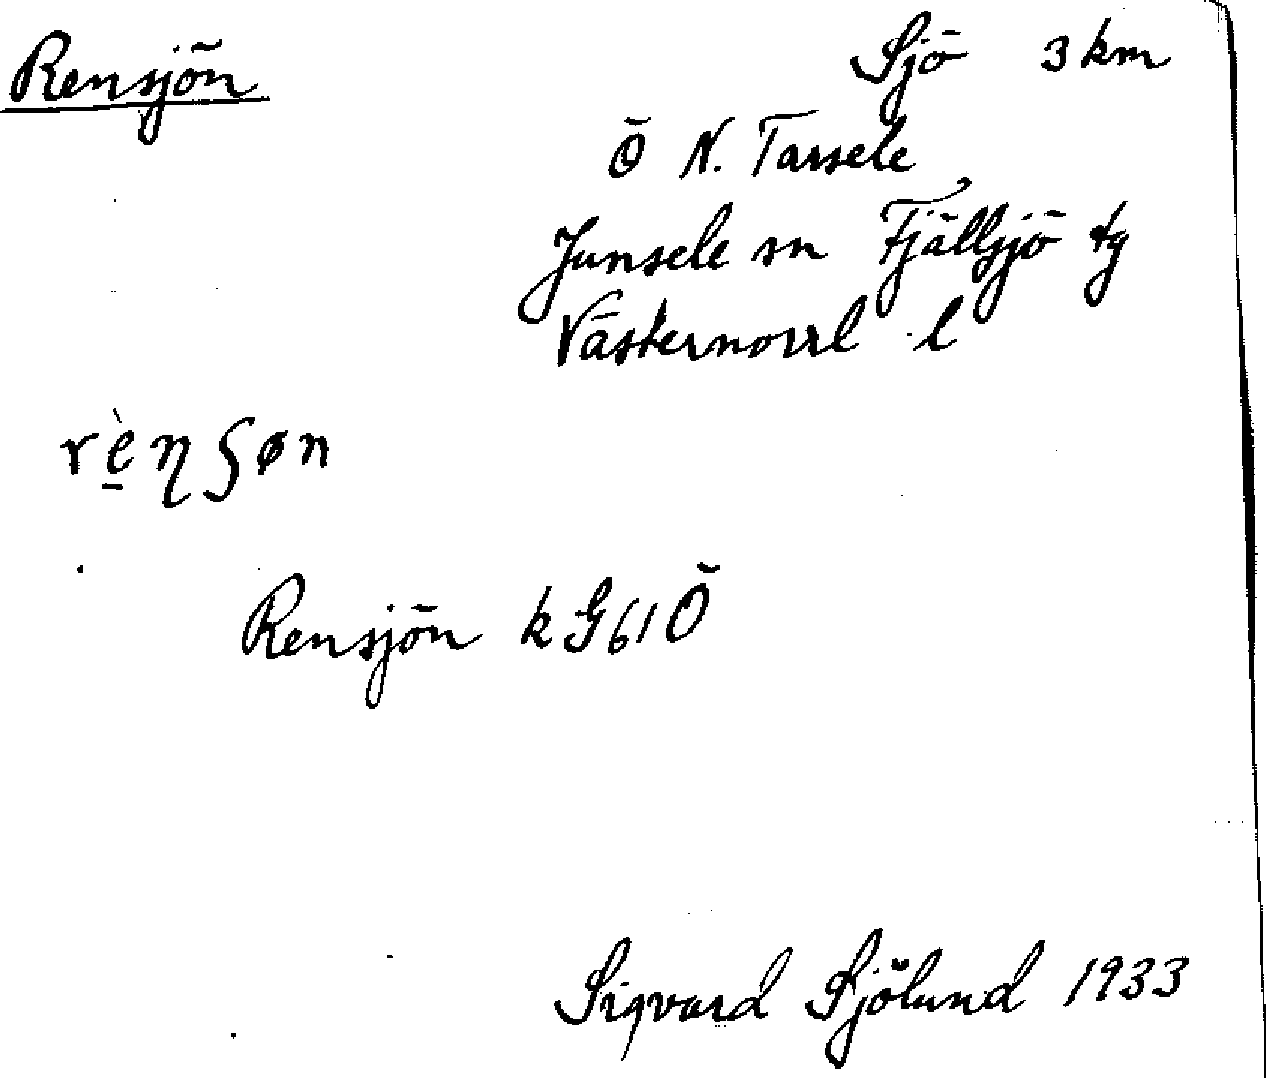 Rensjön Sjö 3 km
Ö N. Tarsele
Junsele sn Fjällsjö tg
Västernorrl l
rè̠ŋʂøn
Rensjön k G61Ö
Sigvard Sjölund 1933